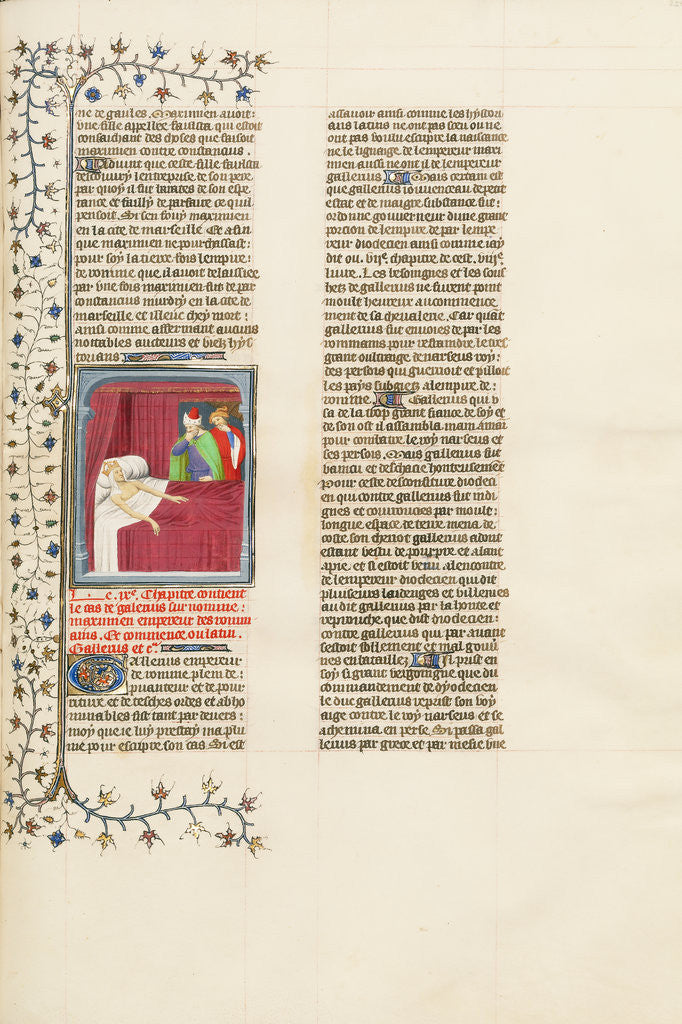 ne de gaules. Maximien auoit
vne fille appellee faustta qui estoit
consaichant des choses que faisoit
maximien contre constancius.
Aduint que ceste fille faustta
descouury lentreprise de son pere
par quoy il fut laraces de son espe
rance et failly de parfaire ce quil
pensoit. Si sen fouy maximien
en la cite de marseille. Et afin
que maximien ne pourchassast
pour soy la tierce fois lempire
de romme que il auoit delaissiee
par vne fois maximien fut de par
constancius murdry en la cite de
marseille et illeuc chey mort
ainsi comme afferment aucuns
nottables aucteurs et vielz hys
torians
Le .ixe. Chapitre contient
le cas de galerius surnomme
maximien empereur des rom
ains. Et commence ou latin.
Gallerius et cª.
Gallerius empereur
de romme plein de
puanteur et de pour
riture et de tesches ordes et abho
minables fist tant par deuers
moy que ie luy prestay ma plu
me pour escripre son cas. Si est
assauoir ainsi comme les hystori
ans latins ne ont pas sceu ou ne
ont pas voulu escripre la naissance
ne le lignaige de lempereur maxi
mien aussi ne ont il de lempereur
gallerius. Mais certain est
que gallerius iouuenceau de petit
estat et de maigre substance fut
ordonne gouuerneur dune grant
porcion de lempire de par lempe
reur dioclecien ainsi comme iay
dit ou .viie. chapitre de cest .viiie.
liure. Les besoingnes et les soub
hetz de gallerius ne furent point
moult heureux au commence
ment de sa cheualerie. Car quant
gallerius fut enuoies de par les
rommains pour restraindre le tres
grant oultraige de narseus roy
des persois qui guerrioit et pilloit
les pays subgietz a lempire de
romme. Gallerius qui v
sa de la trop grant fiance de soy et
de son ost il assembla main a main
pour combatre le roy narseus et
ses persois. Mais gallerius fut
vaincu et deschacie honteusement
Pour ceste desconfiture diocleci
en qui contre gallerius fut indi
gnes et courroucies par moult
longue espace de terre mena de
coste son chariot gallerius adont
estant vestu de pourpre et alant
a pie et si estoit venu alencontre
de lempereur dioclecien qui dit
plusieurs laidenges et villenies
au dit gallerius par la honte et
reprouche que dist dioclecien
contre gallerius qui par auant
sestoit follement et mal gouuer
nes en bataillez. Il prist en
soy si grant vergongne que du
commandement de dyoclecien
le duc gallerius reprist son voy
aige contre le roy narseus et se
achemina en perse. Si passa gal
lerius par grece et par mesie vne